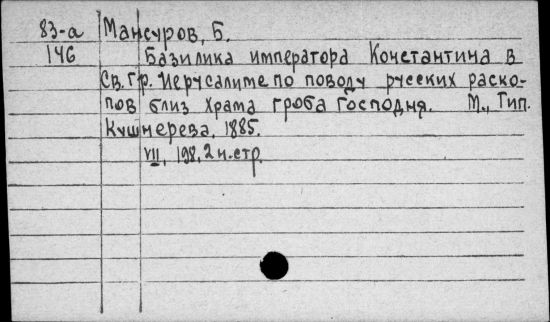 83-а Мансуров, Б.
146 Базилика императора Константина в
Св. Гр. Иерусалиме по поводу русских раско-
пов близ Храма гроба Господня. М., Тип.
Кушнерева, 1885.
VII, 198, 2 н. стр.